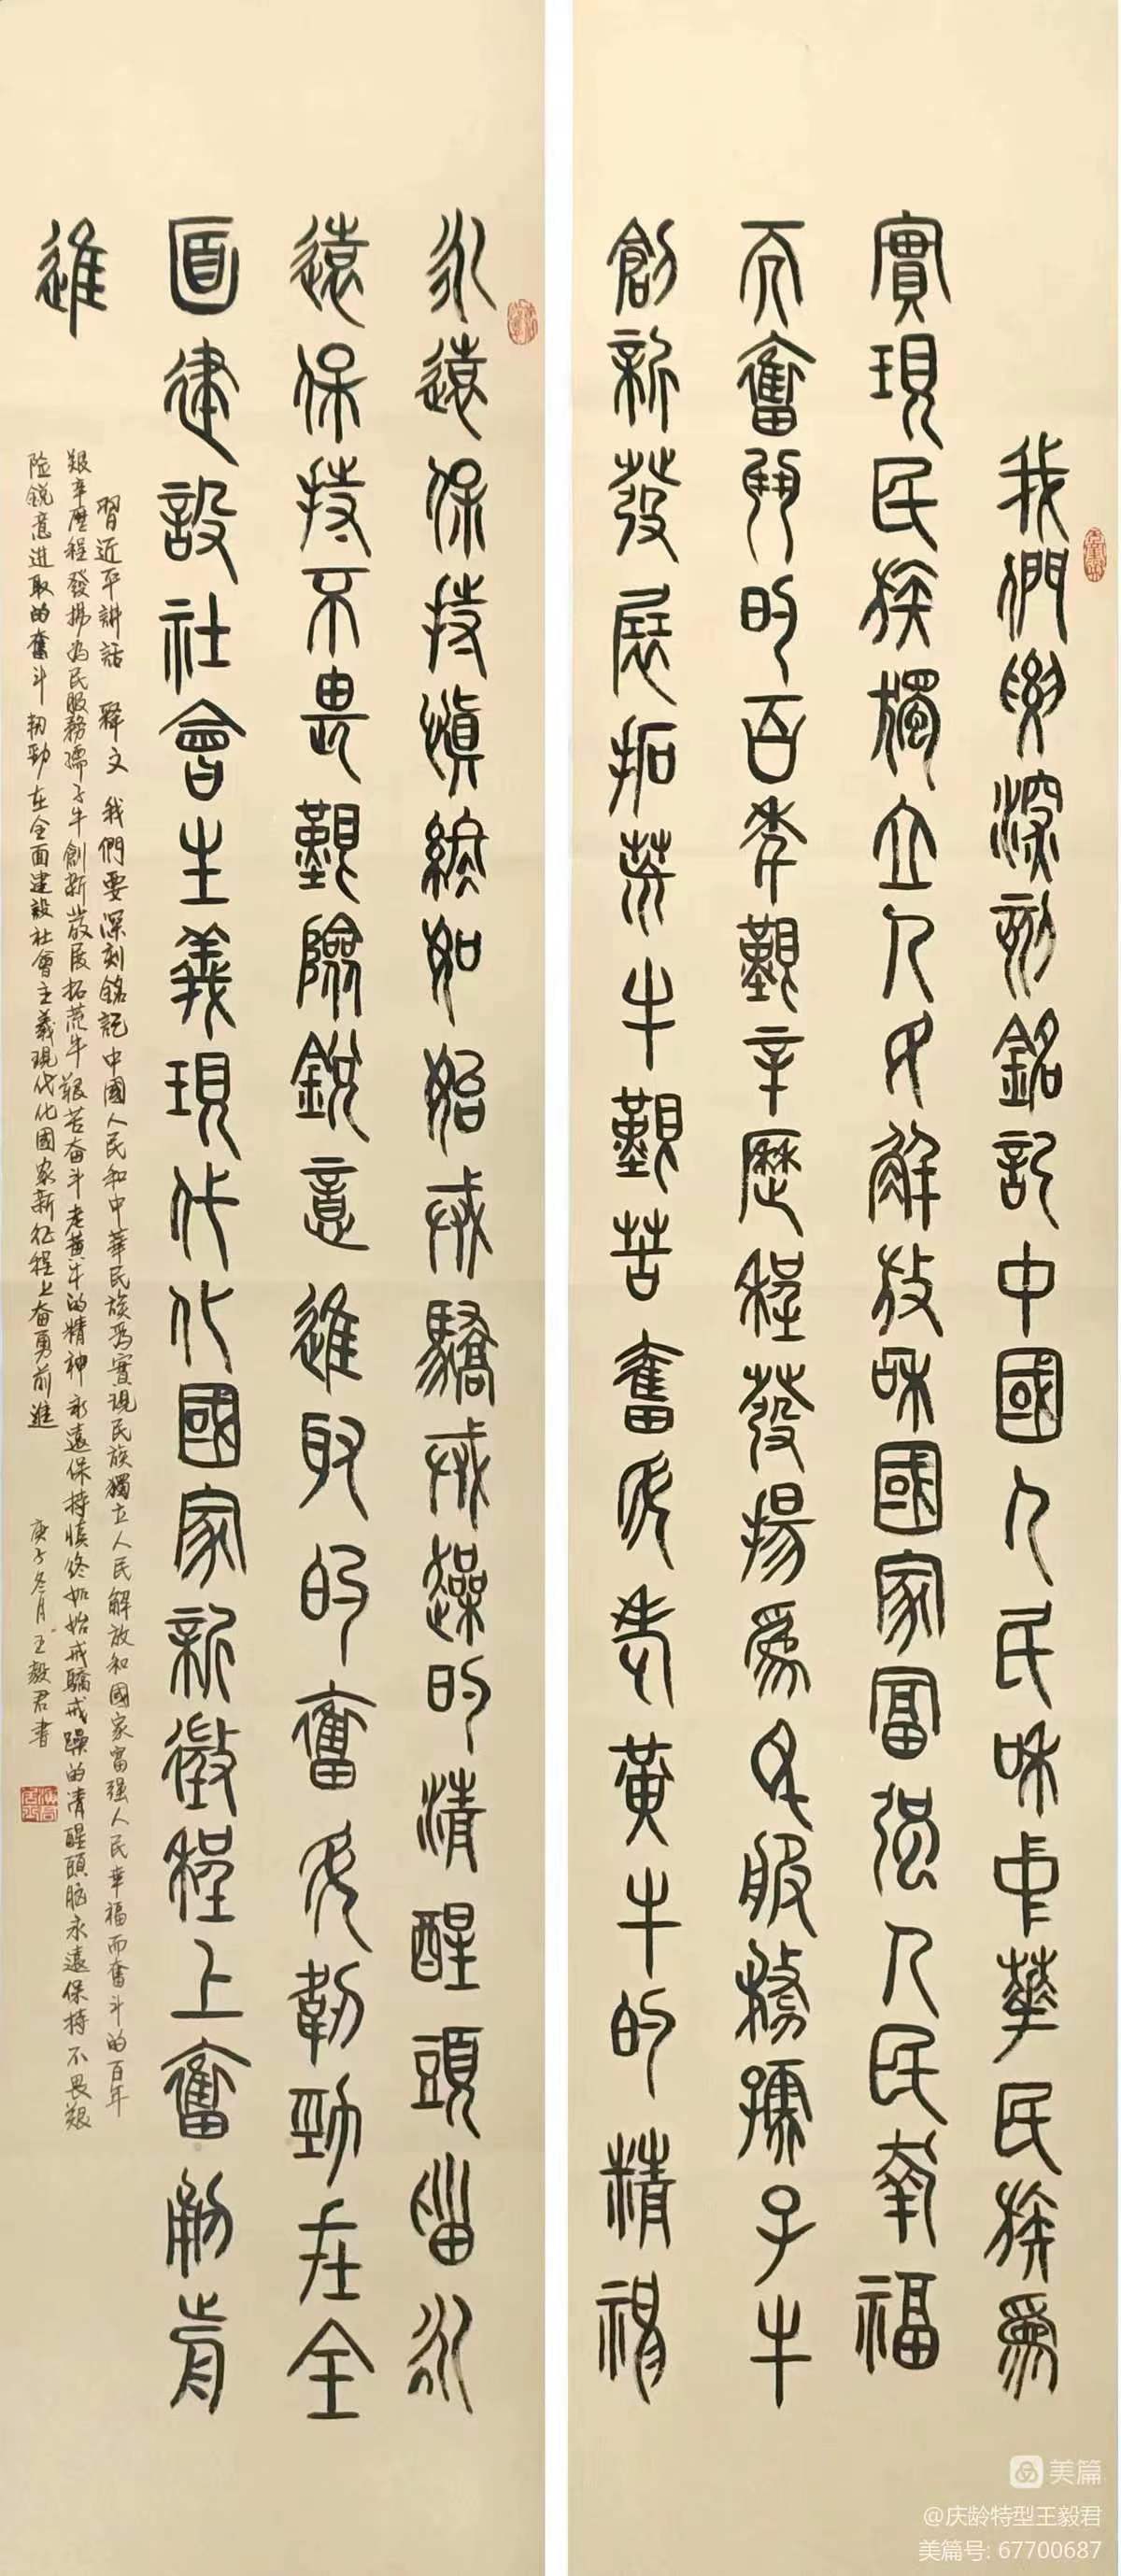 我們要深刻銘記中國人民和中華民族爲
實現民族獨立人民解放和國家富强人民幸福
而奮鬥的百年艱辛歷程發揚爲民服務孺子牛
創新發展拓荒牛艱苦奮鬥老黃牛的精神
永遠保持慎終如始戒驕戒躁的清醒頭腦永
遠保持不畏艱險銳意進取的奮鬥韌勁在全
面建設社會主義現代化國家新徵程上奮勇前
進
習近平講話 釋文 我們要深刻銘記中國人民和中華民族爲實現民族獨立人民解放和國家富强人民幸福而奮斗的百年
艱辛歷程發揚为民服務孺子牛創新發展拓荒牛艱苦奋斗老黄牛的精神永遠保持慎终如始戒驕戒躁的清醒頭脑永遠保持不畏艱
险銳意進取的奮斗韧勁在全面建設社會主義現代化國家新征程上奋勇前進 庚子冬月王毅君書
美篇
@庆龄特型王毅君
美篇号: 67700687